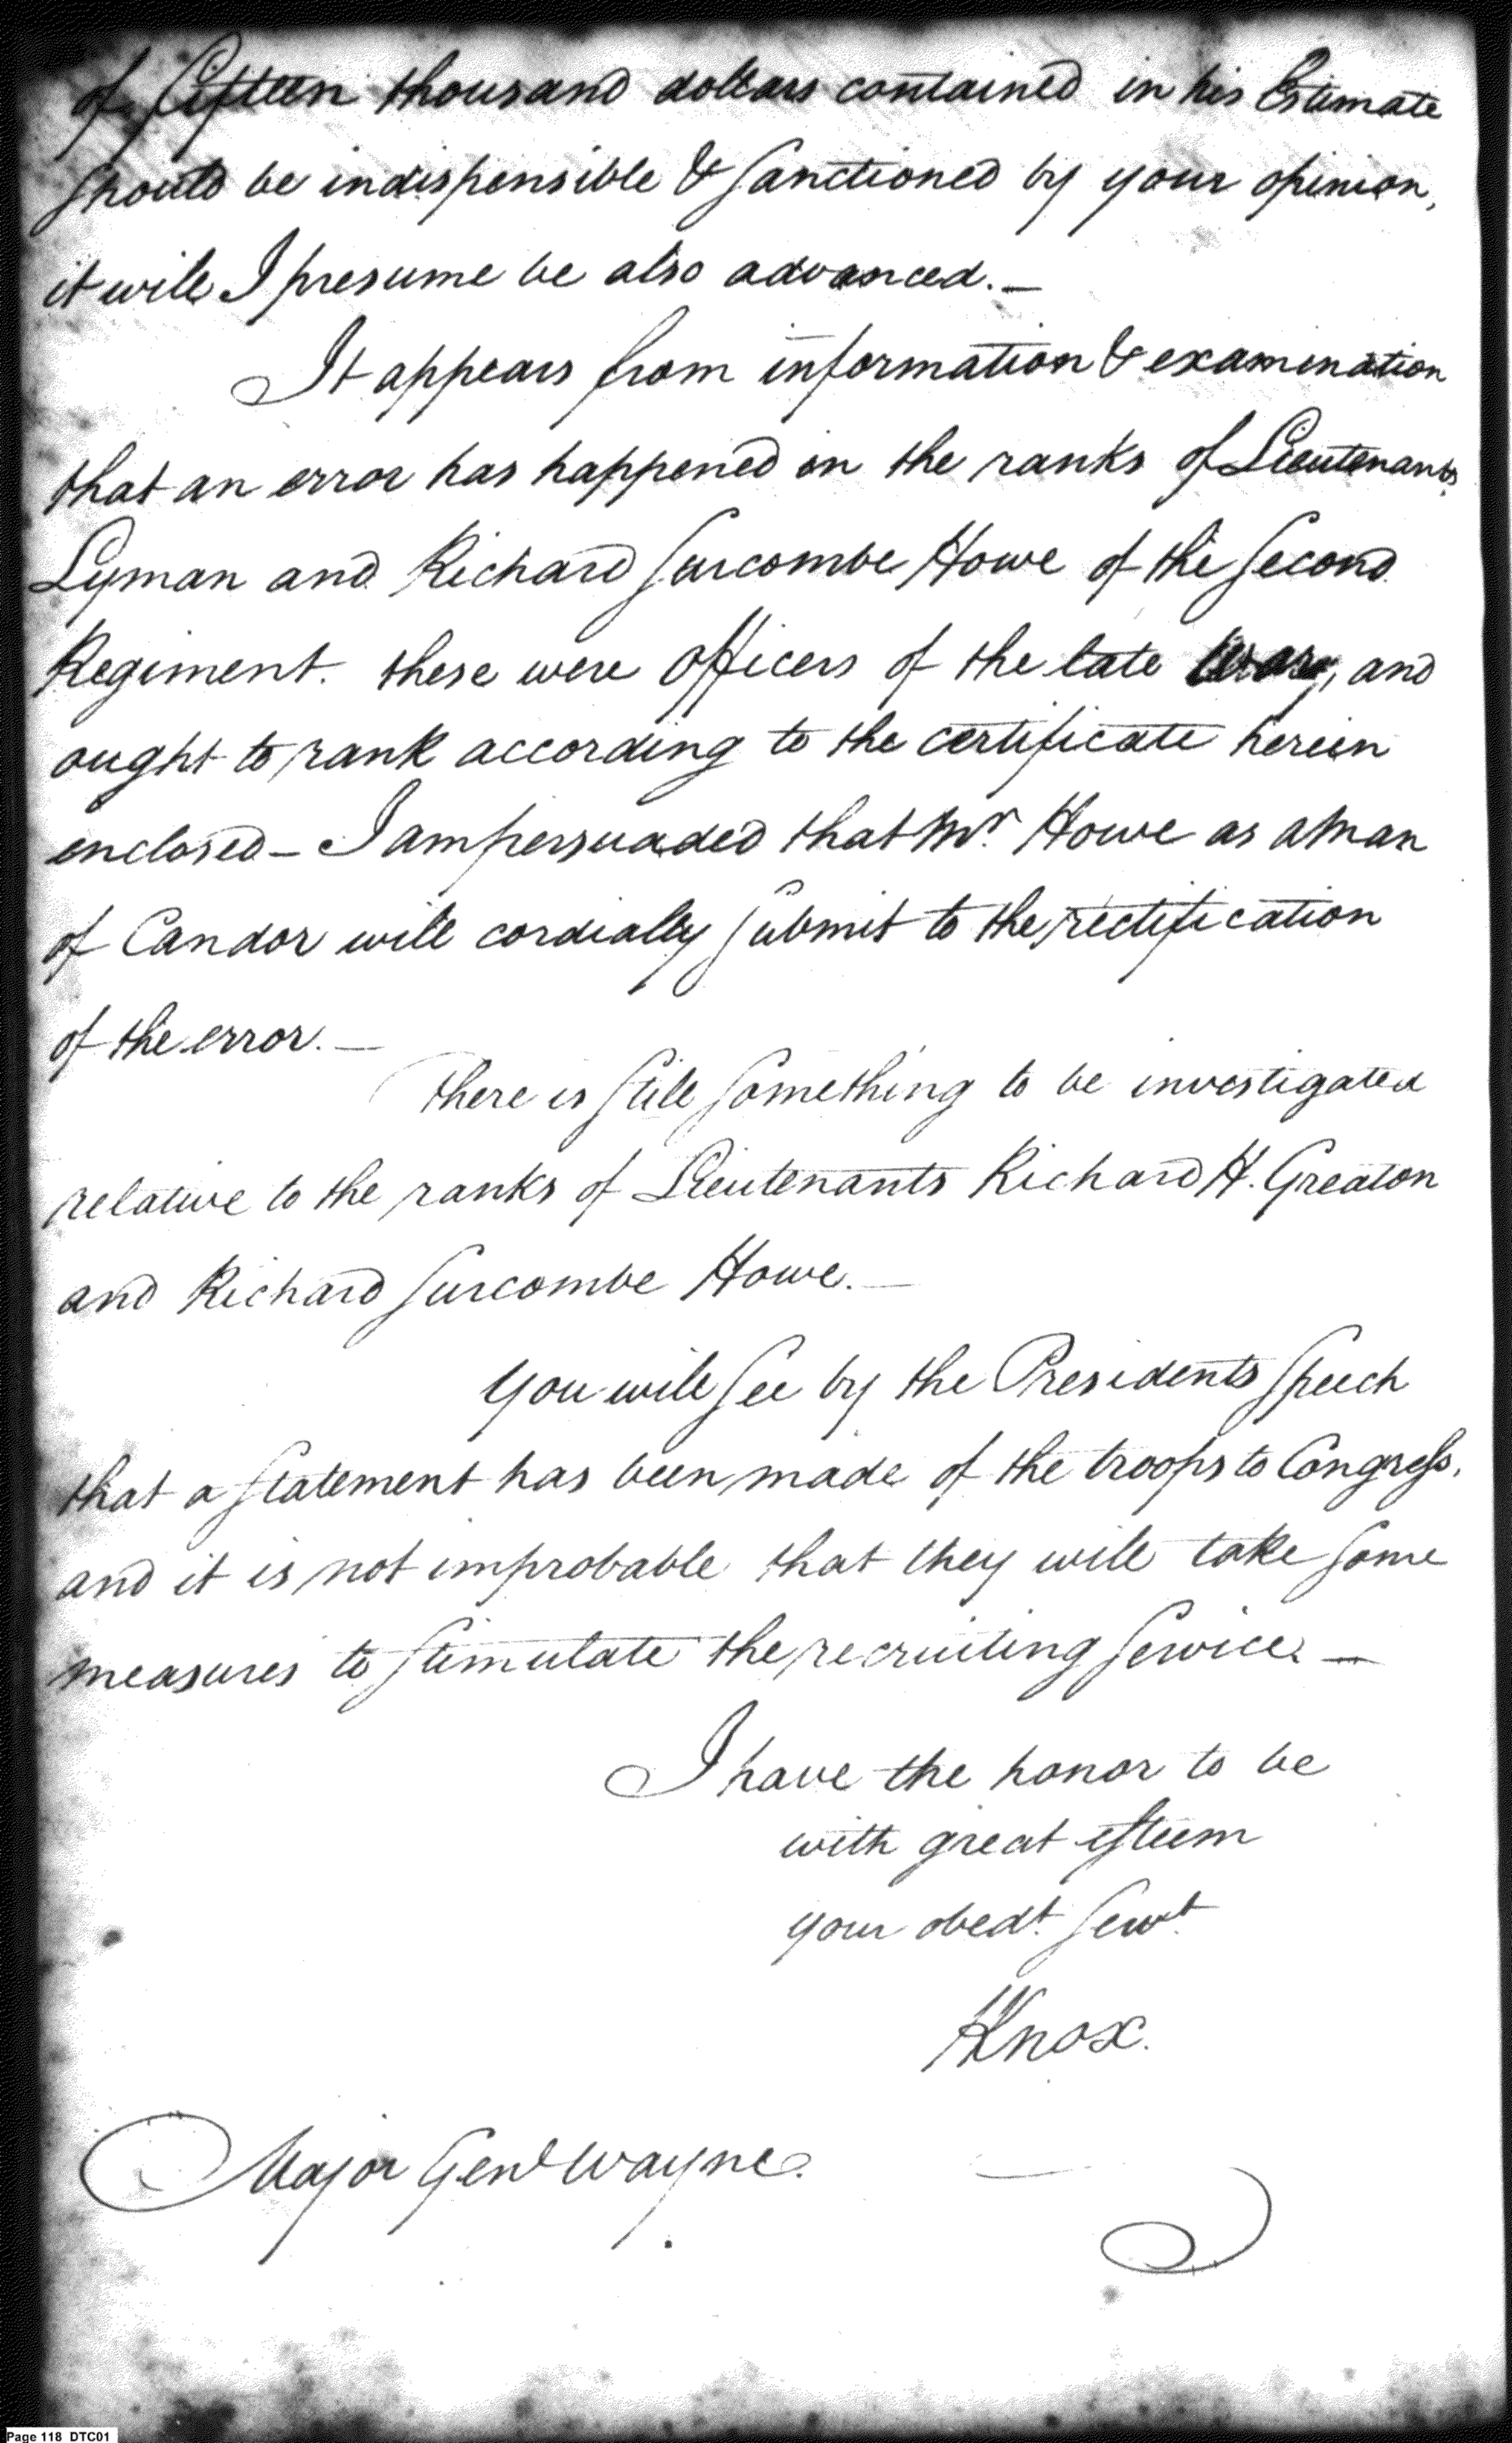 of fifteen thousand dollars contained in his Estimate
should be indispensible & sanctioned by your opinion,
it will I presume be also advanced. —
It appears from information & examination
that an error has happened in the ranks of Lieutenants
Lyman and Richard Surcombe Howe of the second
Regiment. these were Officers of the late war, and
ought to rank according to the certificate herein
enclosed — I am persuaded that Mr. Howe as a Man
of Candor will cordially submit to the rectification
of the error. —
There is still something to be investigated
relative to the ranks of Lieutenants Richard H. Greaton
and Richard Surcombe Howe. —
You will see by the Presidents speech
that a statement has been made of the troops to Congress,
and it is not improbable that they will take some
measures to stimulate the recruiting service. —
I have the honor to be
with great esteem
your obedt. servt.
HKnox.
Major Genl Wayne.
Page 118 DTC01